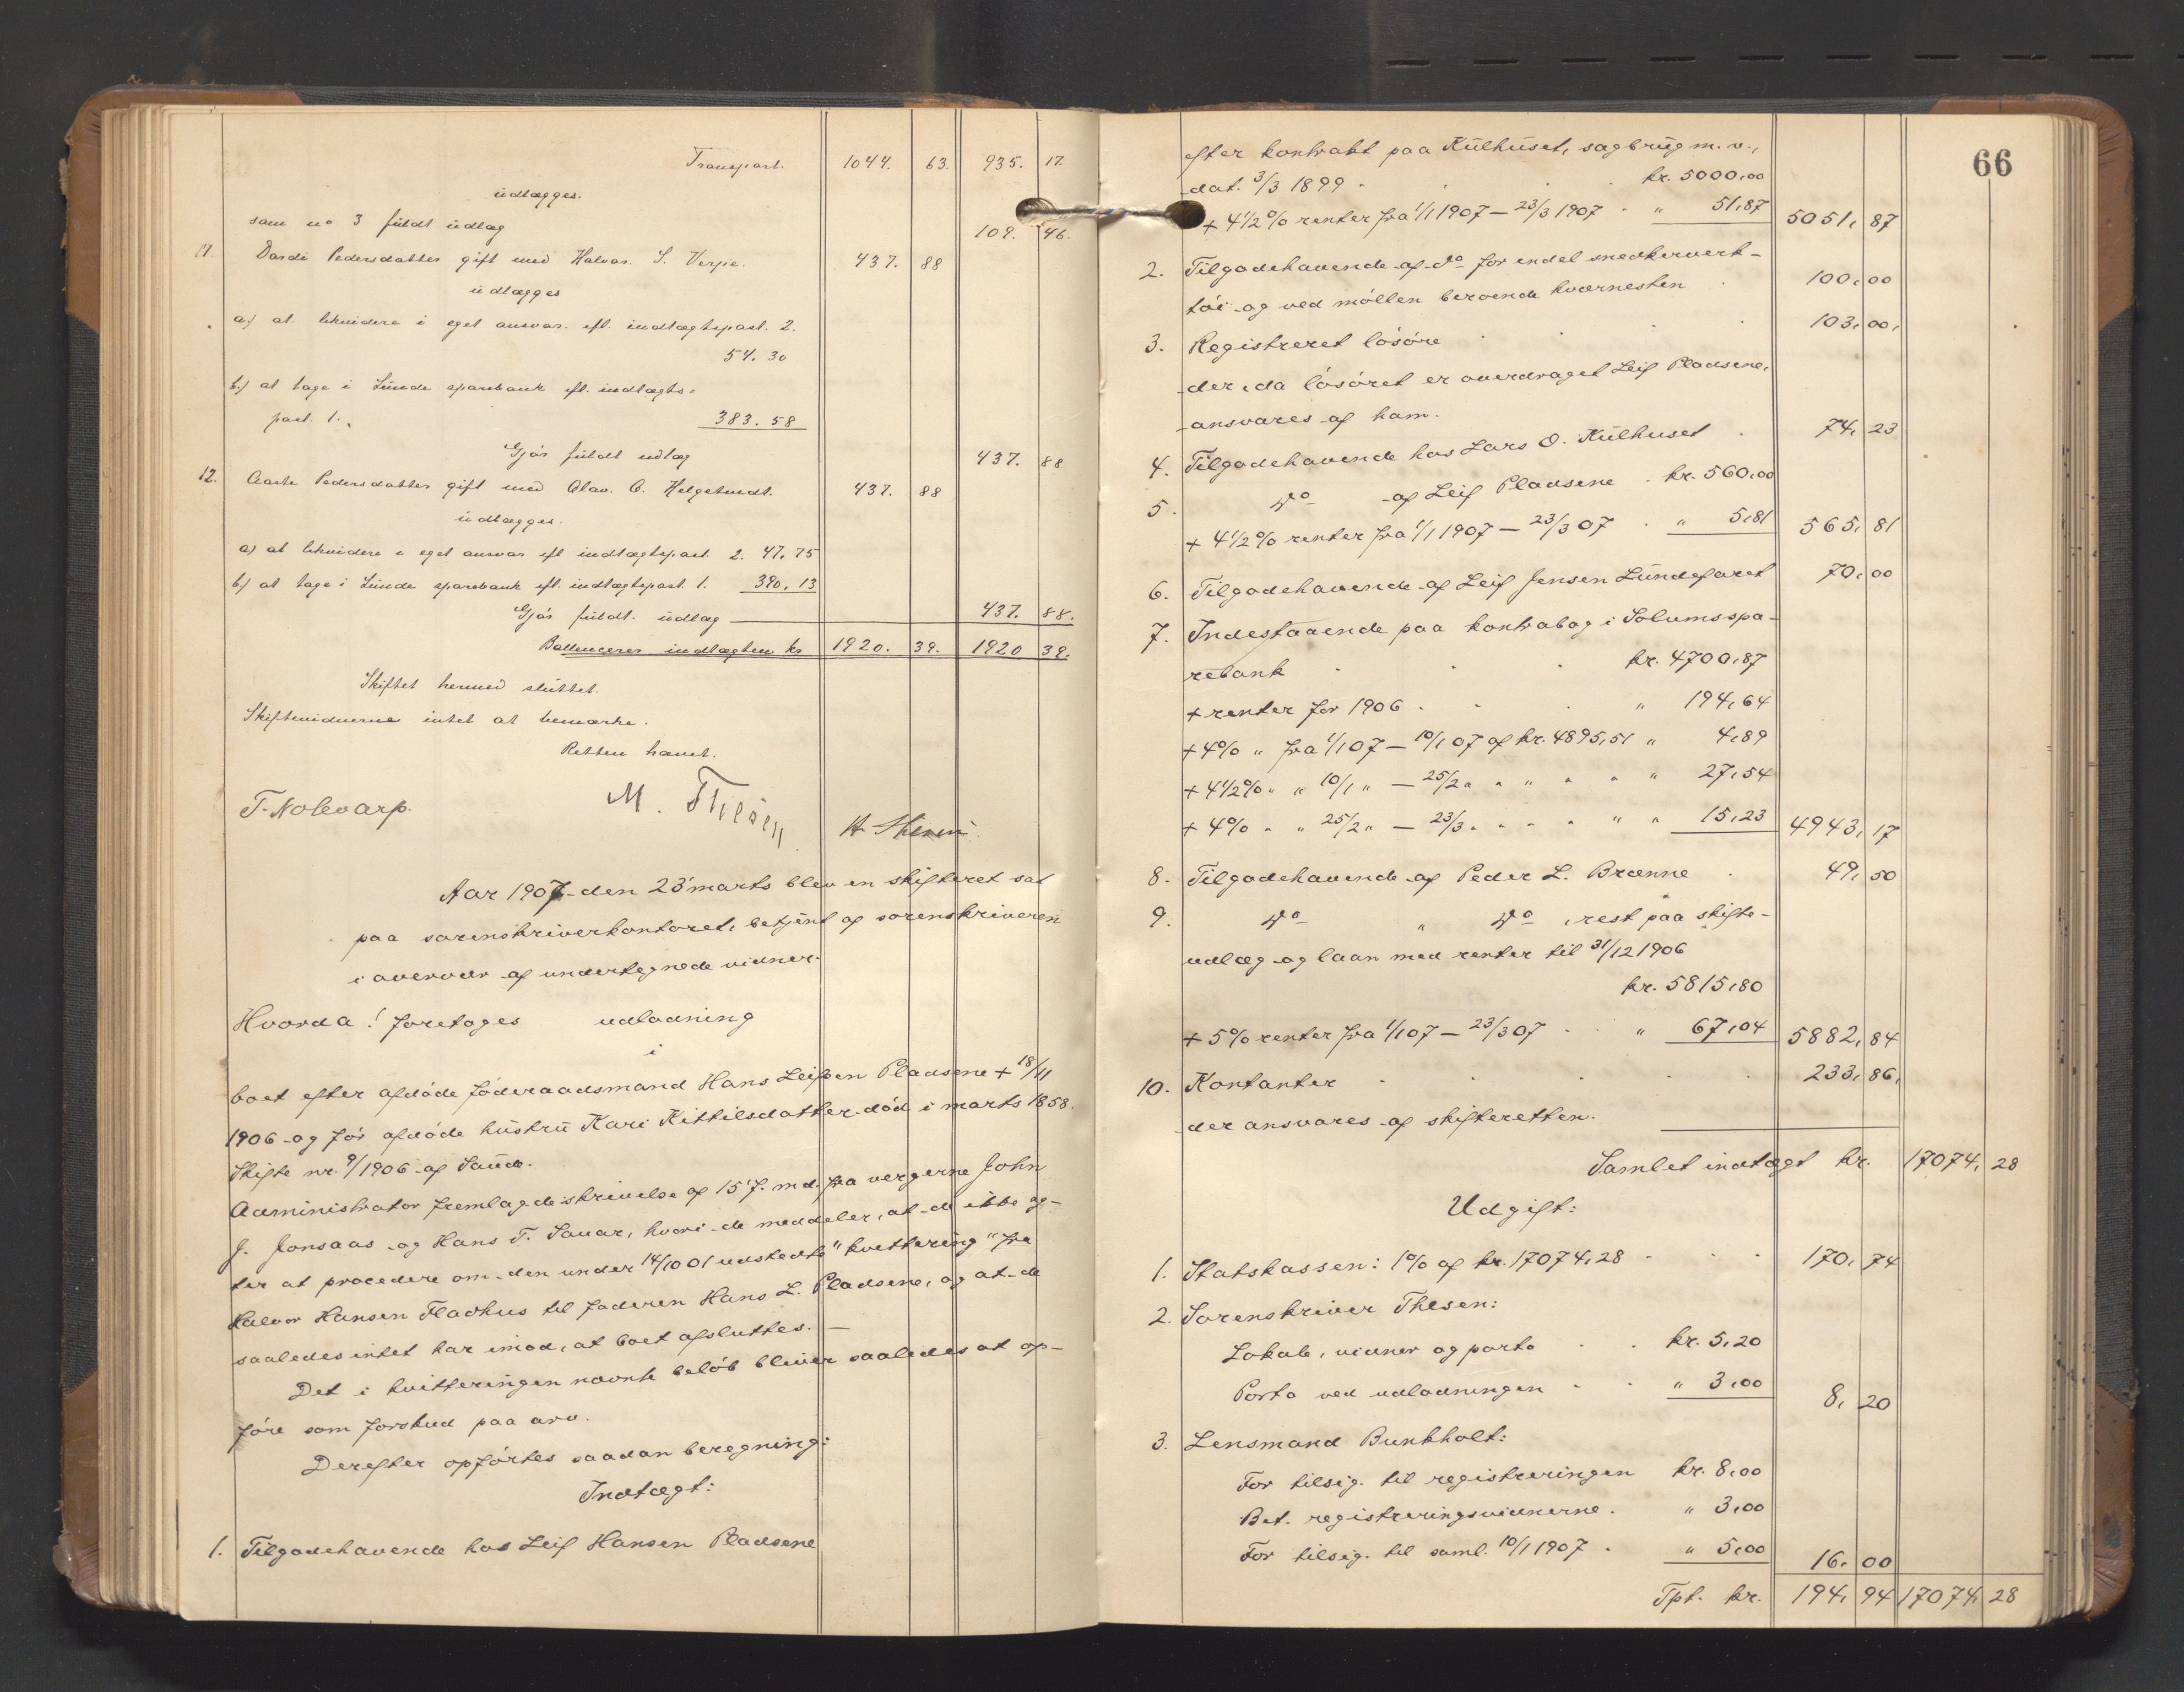 Transport. 1044. 63. 935. 17.
udlægges.
som no 3 fuldt udlæg 109. 46.
11. Dordi Pedersdatter gift med Halvor S. Verpe. 437. 88
udlægges
a.) at likvidere i eget ansvar. efl. indtægtspost. 2.
54. 30
b.) at tage i Lunde sparebank efl. indtægts=
post. 1. 383. 58
Gjør fuldt udlæg 437. 88
12. Aaste Pedersdatter gift med Olav. O. Helgetvedt. 437. 88
udlægges.
a) at likvidere i eget ansvar efl indtægtspost. 2. 47. 75
b.) at tage i Lunde sparebank efl. indtægtspost. 1. 390. 13
Gjør fuldt. udlæg 437. 88.
Ballencerer indtægten kr 1920. 39. 1920 39.
Skiftet hermed sluttet.
Skiftevidnerne intet at bemærke.
Retten hævet.
M. Thesen
T. Nolevarp.
Aar 1907 den 23' marts blev en skifteret sat
paa sorenskriverkontoret, betjent af sorenskriveren
i overvær af undertegnede vidner.
Hvorda! foretoges udlodning
i
boet efter afdøde føderaadsmand Hans Leifsen Pladsene + 18/11
1906 og før afdøde hustru Kari Kittilsdatter død i marts 1858.
Skifte nr. 9/1906 af Saude.
Administrator fremlagde skrivelse af 15' f. md. fra vergerne John
J. Jonsaas og Hans T. Sauar, hvori de meddeler, at de ikke ag-
ter at procedere om den under 14/10 01 udstedte "kvittering" fra
Halvor Hansen Fladhus til faderen Hans L. Pladsene, og at de
saaledes intet har imod, at boet afsluttes. —
Det i kvitteringen nævnte beløb bliver saaledes at op-
føre som forskud paa arv.
Derefter opførtes saadan beregning:
Indtægt:
1. Tilgodehavende hos Leif Hansen Pladsene
66
efter kontrakt paa Kulhuset, sagbrug m. v.,
dat. 3/3 1899 . . . kr. 5000,00
+ 4 1/2 % renter fra 1/1 1907 — 23/3 1907 . " 51,87 5051, 87
2. Tilgodehavende af do for endel snedkerverk-
tøi og ved møllen beroende kværnesten . 100,00
3. Registreret løsøre . . . 103,00,
der, da løsøret er overdraget Leif Pladsene,
ansvares af ham.
4. Tilgodehavende hos Lars O. Kulhuset . 74, 23
5. do af Leif Pladsene . kr. 560,00
+ 4 1/2 % renter fra 1/1 1907 — 23/3 07 . " 5,81 565, 81
6. Tilgodehavende af Leif Jensen Lundefaret 70,00
7. Indestaaende paa kontrabog i Solumsspa-
rebank . . . kr. 4700,87
+ renter for 1906 . . . " 194,64
+ 4% " fra 1/1 07 — 10/1 07 af kr. 4895,51 " 4,89
+ 4 1/2 % " " 10/1 " — 25/2 " " " " " 27,54
+ 4% " " 25/2 " — 23/3 " " " " " " 15,23 4943, 17
8. Tilgodehavende af Peder L. Brænne . 49, 50
9. do " do , rest paa skifte-
udlæg og laan med renter til 31/12 1906
kr. 5815,80
+ 5% renter fra 1/1 07 — 23/3 07 . . " 67,04 5882, 84
10. Kontanter . . . . 233, 86,
der ansvares af skifteretten.
Samlet indtægt kr. 17074, 28
Udgift:
1. Statskassen: 1% af kr. 17074,28 . . . 170, 74
2. Sorenskriver Thesen:
Lokale, vidner og porto . . kr. 5,20
Porto ved udlodningen . . " 3,00 8, 20
3. Lensmand Bunkholt:
For tilsig. til registreringen kr. 8,00
Bet. registreringsvidnerne . " 3,00
For tilsig. til saml. 10/1 1907 . " 5,00 16, 00
Tpt. kr. 194, 94 17074, 28